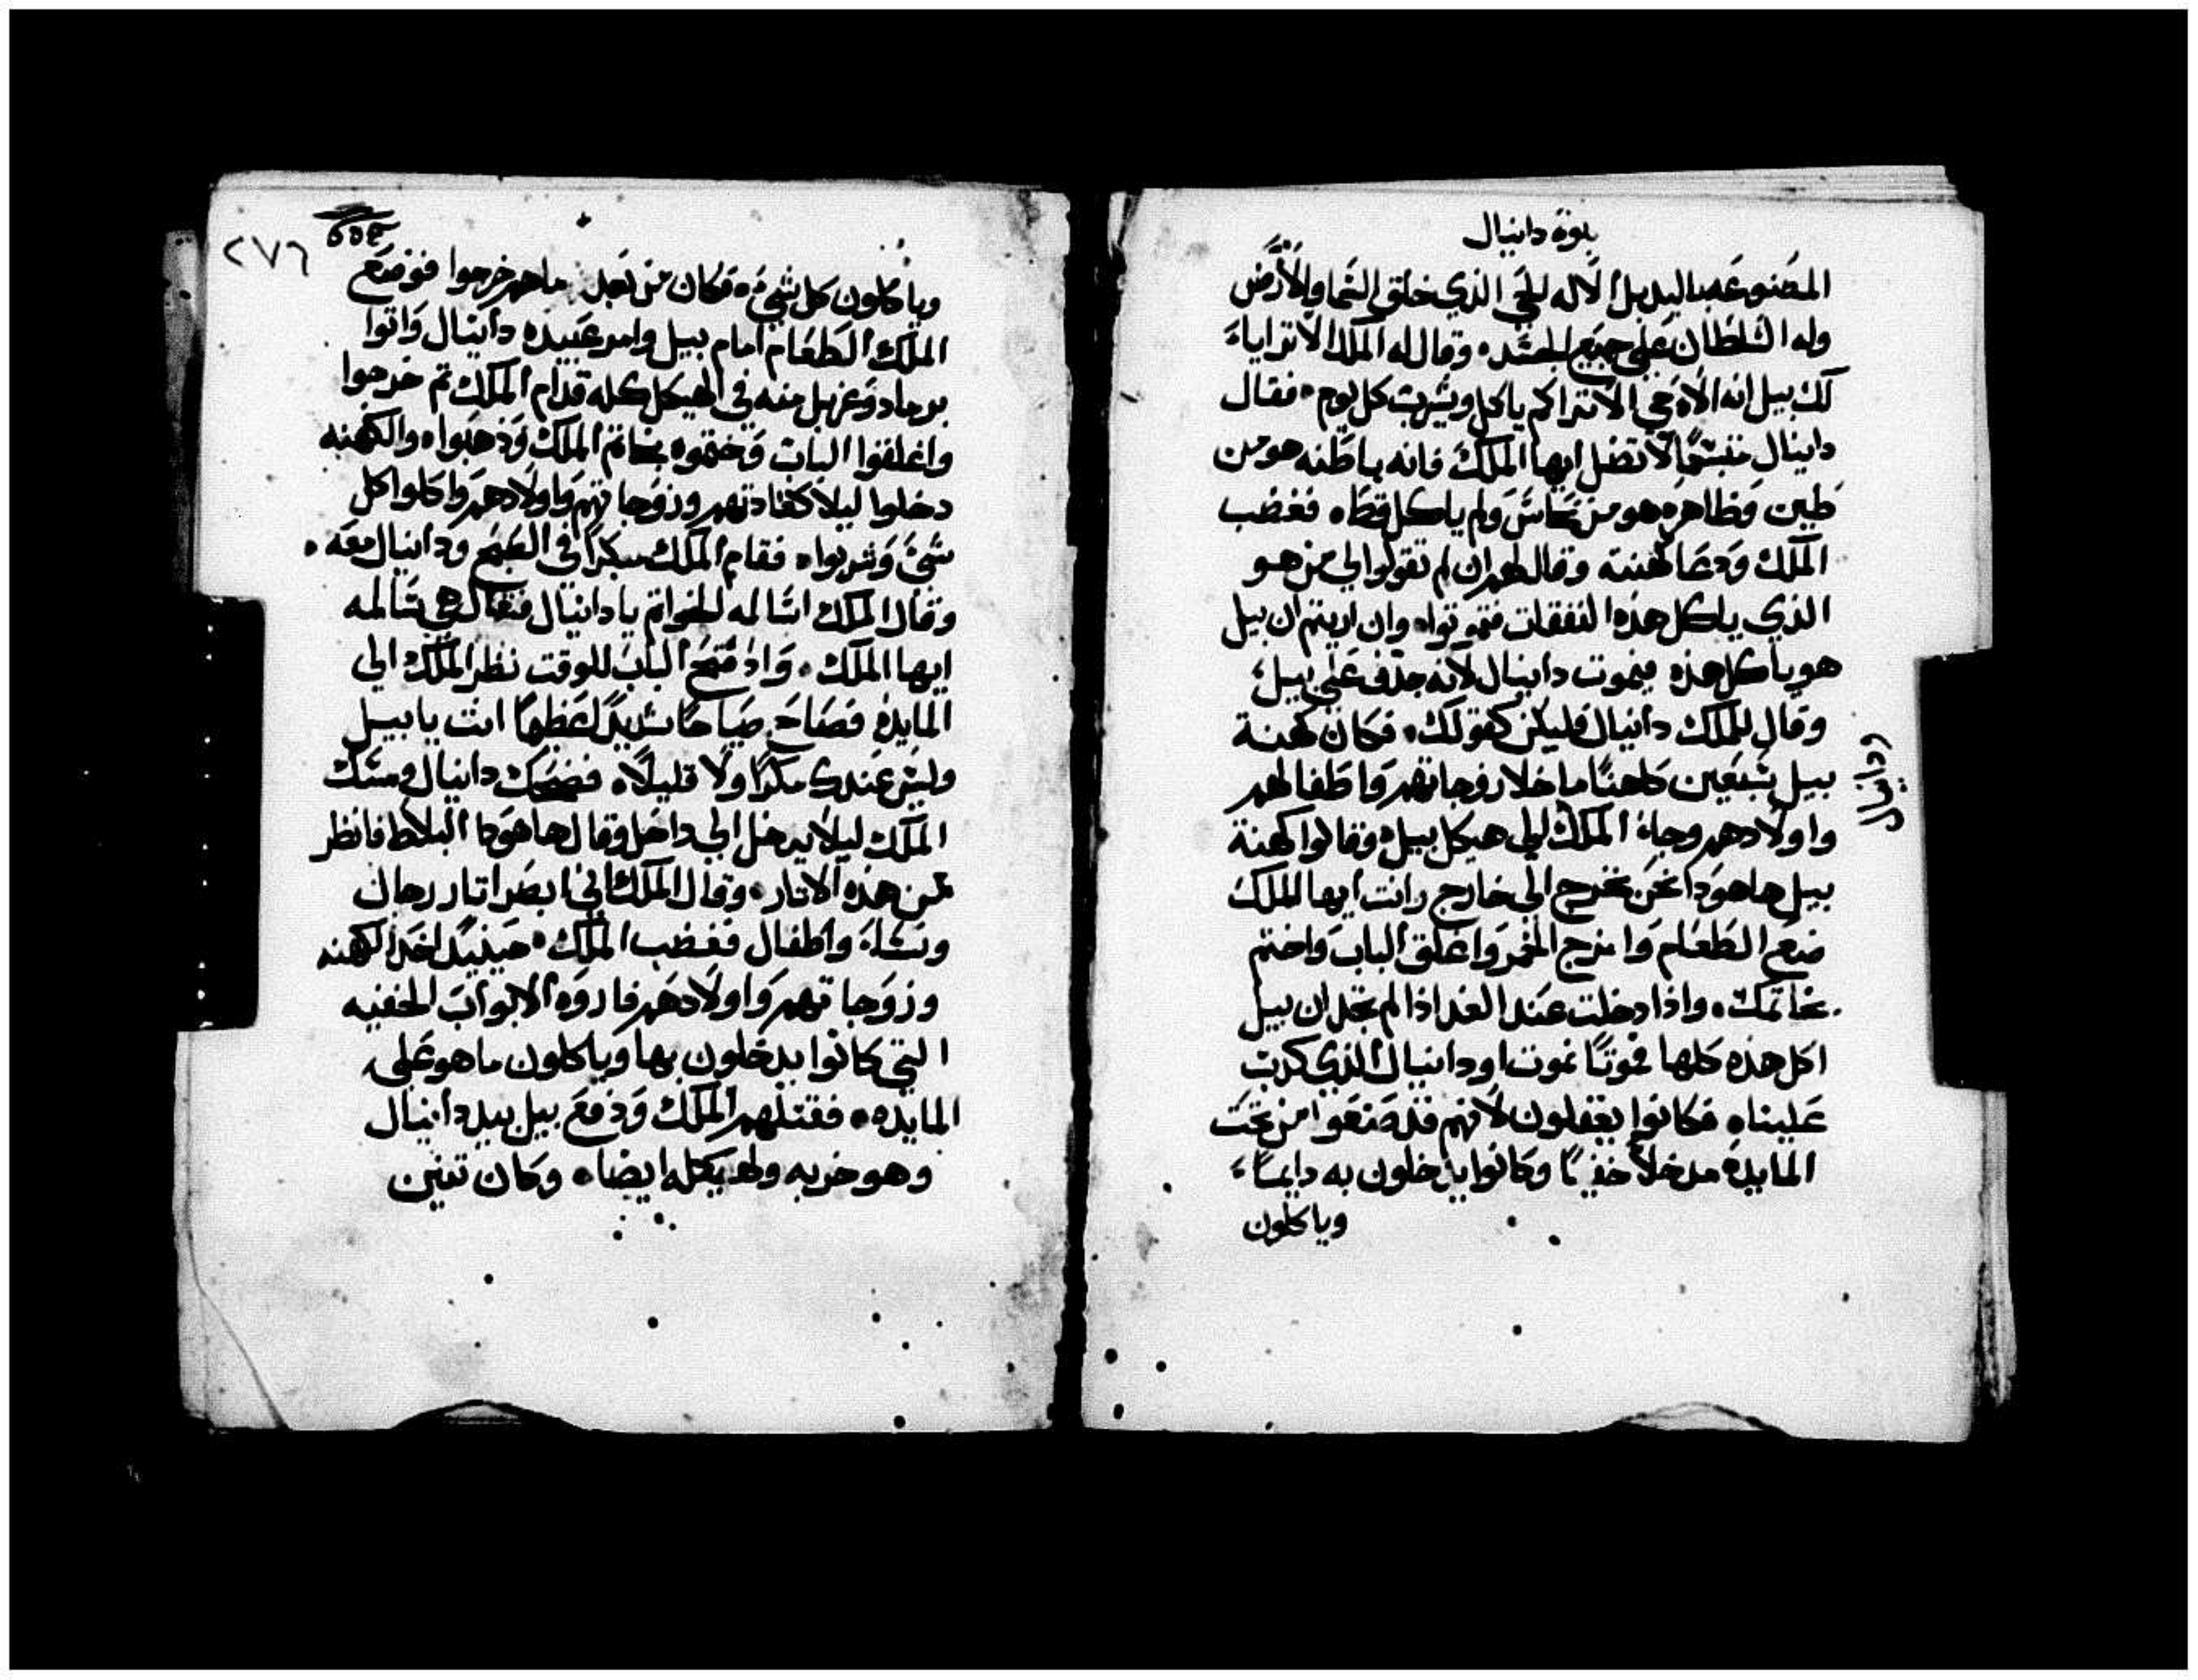 نبوة دانيال
المصنوعه باليد بل الاله الحي الذي خلق السما والارض
وله السلطان على جميع الجسد. وقال له الملك الا ترايا
لك بيل انه الاه حي الا تراكم ياكل ويشرب كل يوم. فقال
دانيال متبسمًا لا تضل ايها الملك فانه باطنه هو من
طين وظاهره هو من نحاس ولم ياكل قط. فغضب
الملك ودعا كهنته وقال لهم ان لم تقولوا لي من هو
الذي ياكل هذه النفقات فتموتوا. وان اريتم ان بيل
هو ياكل هذه فيموت دانيال لانه جدف على بيل
وقال للملك دانيال فليكن كقولك. فكان كهنة
بيل سبعين كاهنًا ما خلا زوجاتهم واطفالهم
واولادهم وجاء الملك الى هيكل بيل وقالوا كهنة
بيل هاهودا نحن نخرج الى خارج وانت ايها الملك
ضع الطعام وامزج الخمر واغلق الباب واختم
بخاتمك. واذا دخلت عند الغد اذا لم تجد ان بيل
اكل هذه كلها فموتًا نموت او دانيال الذي كدب
علينا. فكانوا يغفلون لانهم قد صنعوا من تحت
المايدة مدخلاً خفيًا وكانوا يدخلون به دايمًا
وياكلون
دانيال
٢٧٦
وياكلون كل شيء. فكان من بعد ما هم خرجوا فوضع
الملك الطعام امام بيل وامر عبيده دانيال واتوا
برماد وغربل منه في الهيكل كله قدام الملك تم خرجوا
واغلقوا الباب وختموه بخاتم الملك وذهبوا. والكهنه
دخلوا ليلا كعادتهم وزوجاتهم واولادهم واكلوا كل
شي وشربوا. فقام الملك مبكرًا في الصبح ودانيال معه.
وقال الملك اسالمه الخواتم يا دانيال فقال هي سالمه
ايها الملك. واد فتح الباب للوقت نظر الملك الى
المايده فصاح صياحًا شديدًا عظيمًا انت يا بيل
وليس عندك مكرًا ولا قليلاً. فضحك دانيال ومسك
الملك ليلا يدخل الى داخل وقال هاهودا البلاط فانظر
لمن هذه الاتار. وقال الملك اني ابصر اتار رجال
ونساء واطفال فغضب الملك. حينيد اخد الكهنه
وزوجاتهم واولادهم فاروه الابواب الخفيه
التي كانوا يدخلون بها وياكلون ما هو على
المايده. فقتلهم الملك ودفع بيل بيد دانيال
وهو خربه ولهيكله ايضا. وكان تنين